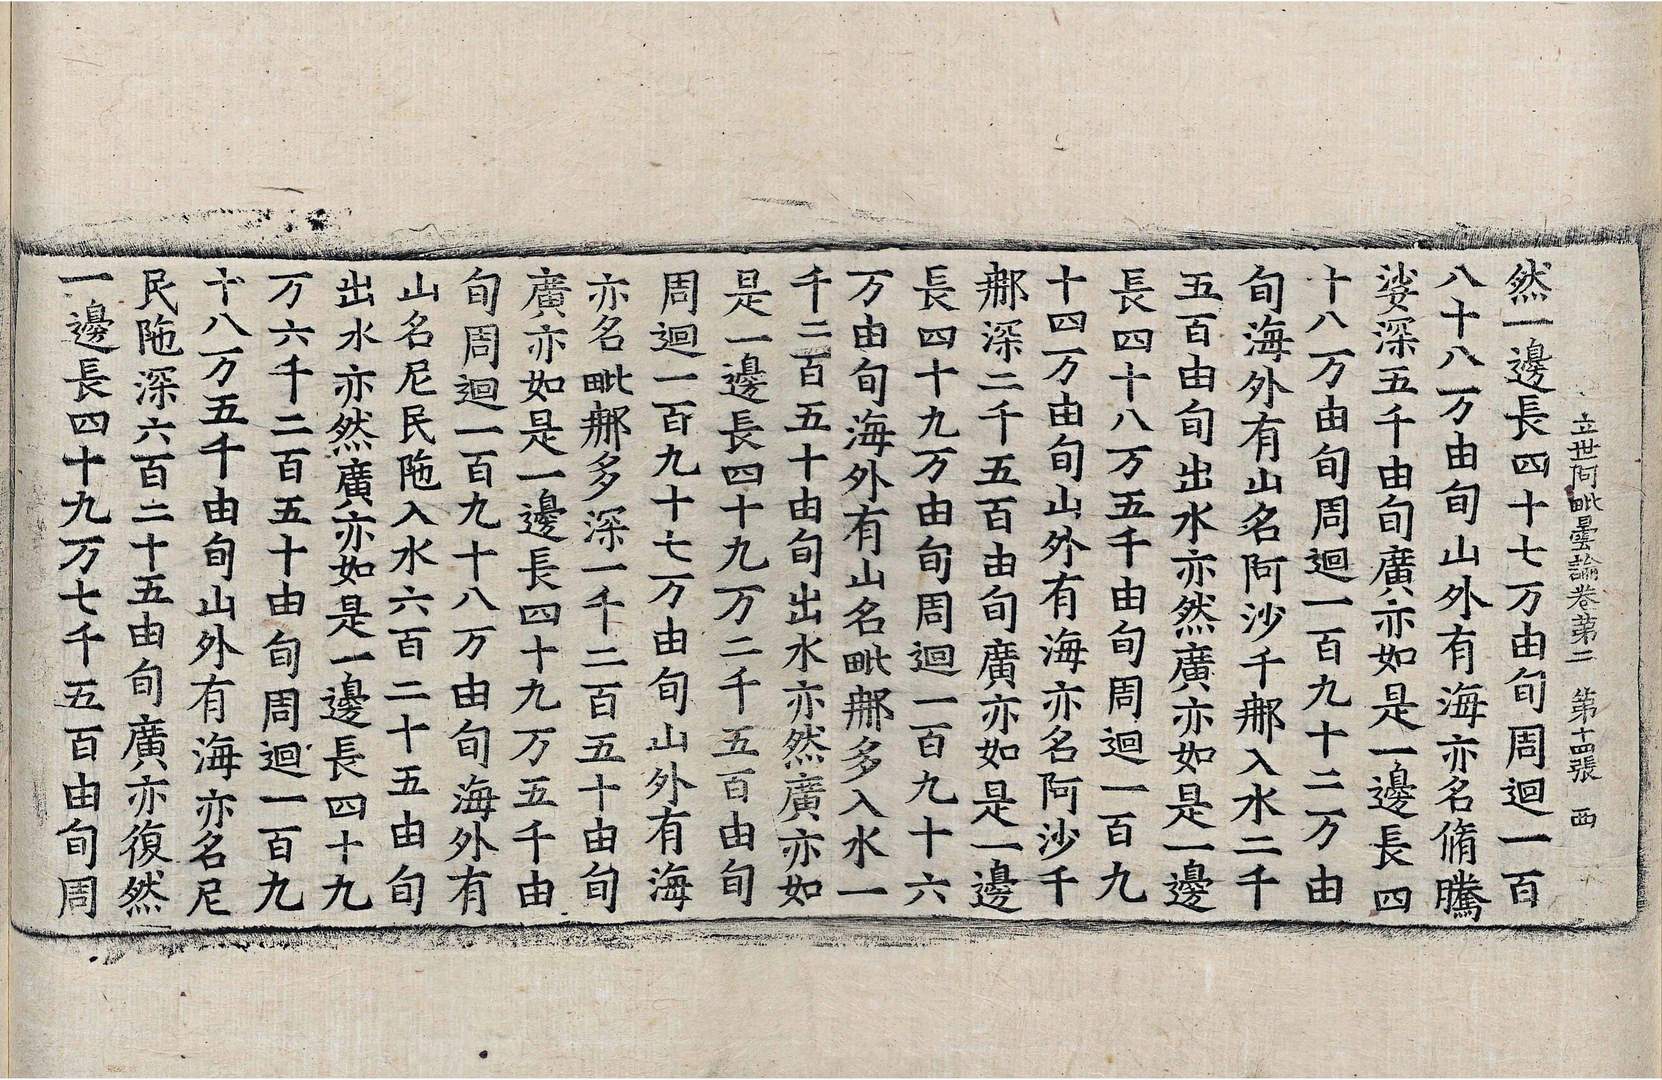 立世阿毗曇論卷第二　第十四張　西
然一邊長四十七万由旬周迴一百
八十八万由旬山外有海亦名脩騰
娑深五千由旬廣亦如是一邊長四
十八万由旬周迴一百九十二万由
旬海外有山名阿沙千郍入水二千
五百由旬出水亦然廣亦如是一邊
長四十八万五千由旬周迴一百九
十四万由旬山外有海亦名阿沙千
郍深二千五百由旬廣亦如是一邊
長四十九万由旬周迴一百九十六
万由旬海外有山名毗郍多入水一
千二百五十由旬出水亦然廣亦如
是一邊長四十九万二千五百由旬
周迴一百九十七万由旬山外有海
亦名毗郍多深一千二百五十由旬
廣亦如是一邊長四十九万五千由
旬周迴一百九十八万由旬海外有
山名尼民陁入水六百二十五由旬
出水亦然廣亦如是一邊長四十九
万六千二百五十由旬周迴一百九
十八万五千由旬山外有海亦名尼
民陁深六百二十五由旬廣亦復然
一邊長四十九万七千五百由旬周